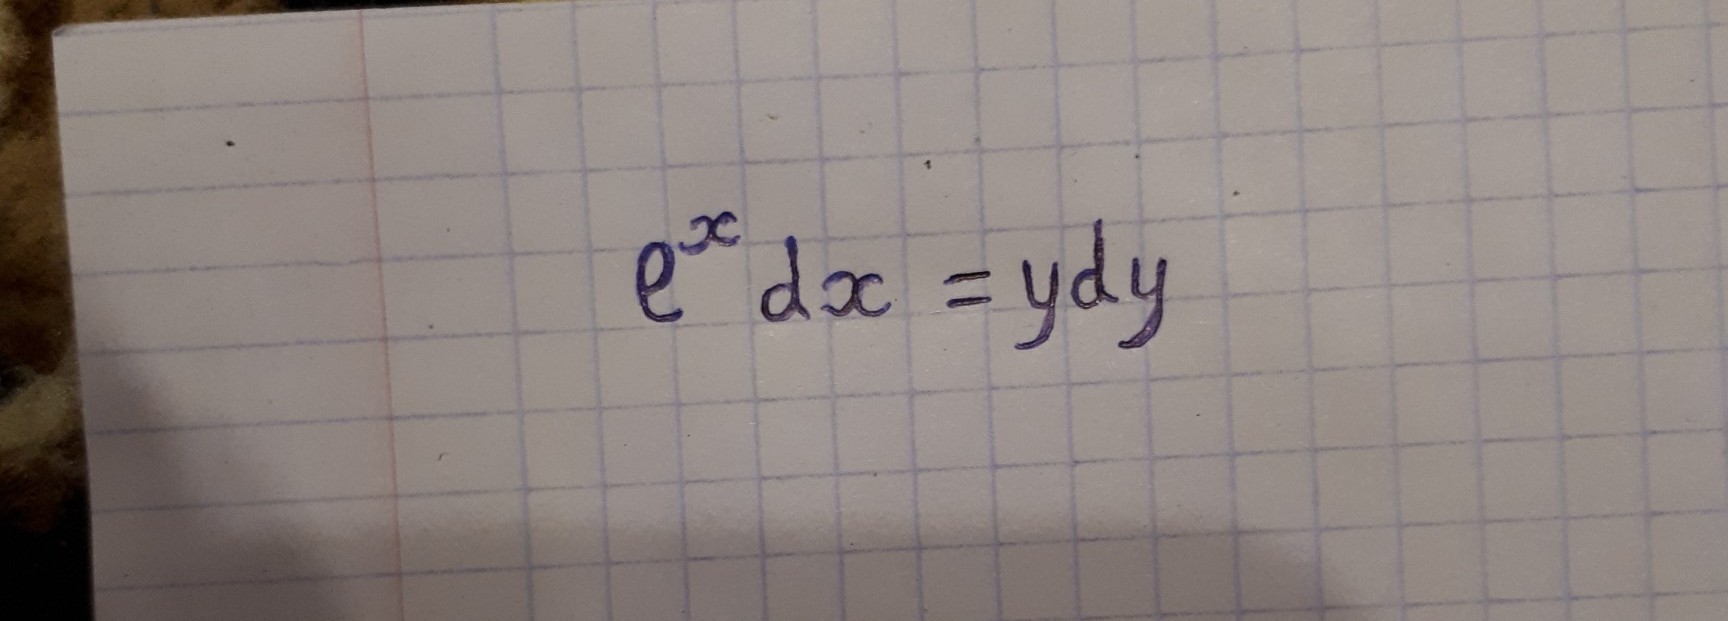 e^x dx = ydy